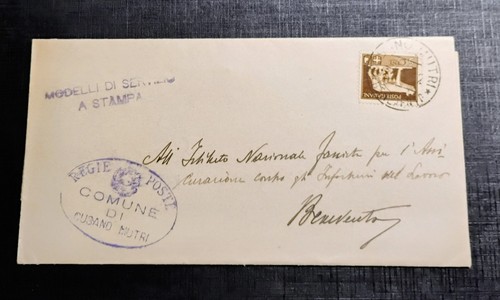 MODELLI DI SERVIZIO
A STAMPA
POSTE ITALIANE
All'Istituto Nazionale Fascista per l'Assi
curazione contro gli Infortuni sul Lavoro
Benevento
REGIE POSTE
COMUNE
DI
CUSANO MUTRI
CUSANO MUTRI